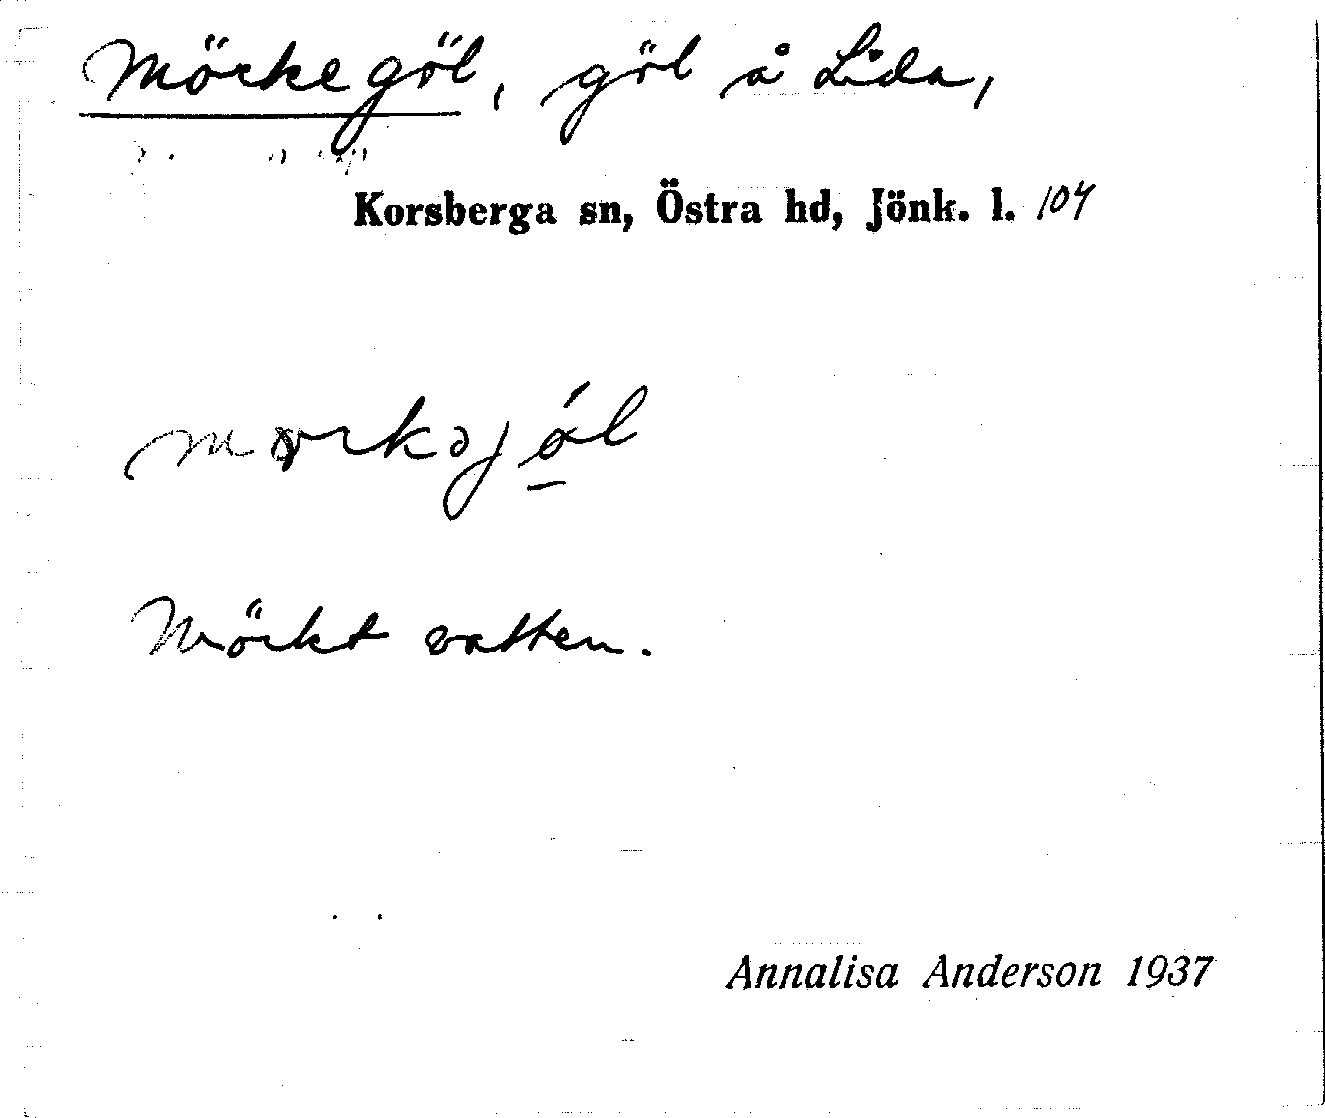 Mörkegöl, göl å Lida,
Korsberga sn, Östra hd, Jönk. l. 104
mörkəjö̱́l
Mörkt vatten.
Annalisa Anderson 1937